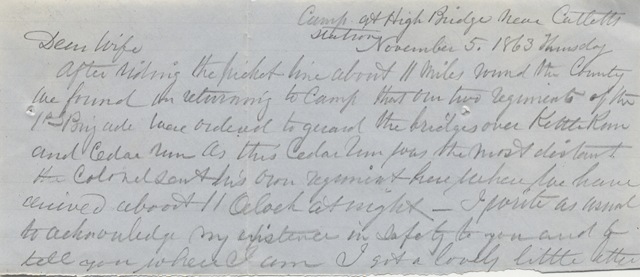 Camp at High Bridge near Catletts
Station
November 5. 1863 Thursday
Dear Wife
After riding the picket line about 11 miles round the County
we found on returning to Camp that our two regiments of the
1st Brigade were ordered to guard the bridges over Kettle Run
and Cedar run As this Cedar run was the most distant
the Colonel sent his own regiment here where we have
arrived about 11 Oclock at night — I write as usual
to acknowledge my existence in safety to you and to
tell you where I am I got a lovely little letter